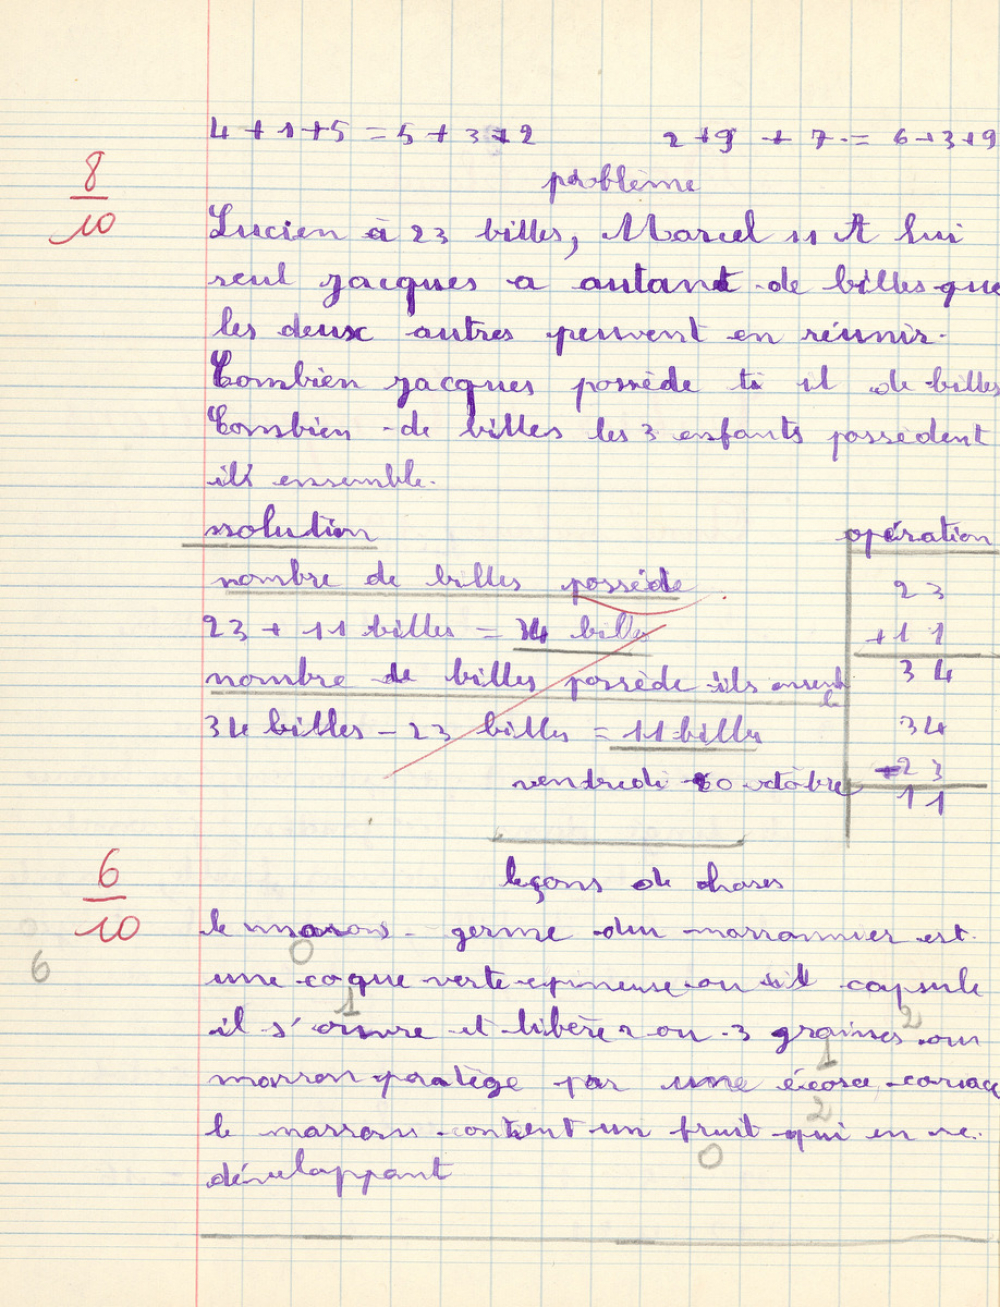 4 + 1 + 5 = 5 + 3 + 2 2 + 9 + 7 = 6 + 3 + 9
problème
8/10
Lucien à 23 billes, Marcel 11 A lui
seul jacques a autant de billes que
les deux autres peuvent en réunir.
Combien jacques possède ti il de billes
Combien de billes les 3 enfants possèdent
ils ensemble.
solution
opération
nombre de billes possède
23 + 11 billes = 34 billes
nombre de billes possède ils ensemble
34 billes - 23 billes = 11 billes
23
+11
34
34
-23
11
vendredi 10 octobre
leçons de choses
6/10
6
le marrons germe du marronnier est
0
une coque verte epineuse ou capsule
1 2
il s'ouvre et libère 2 ou 3 graines ou
1
marron protège par une écorce coriac
2
le marron contient un fruit qui en se
0
dévelappant